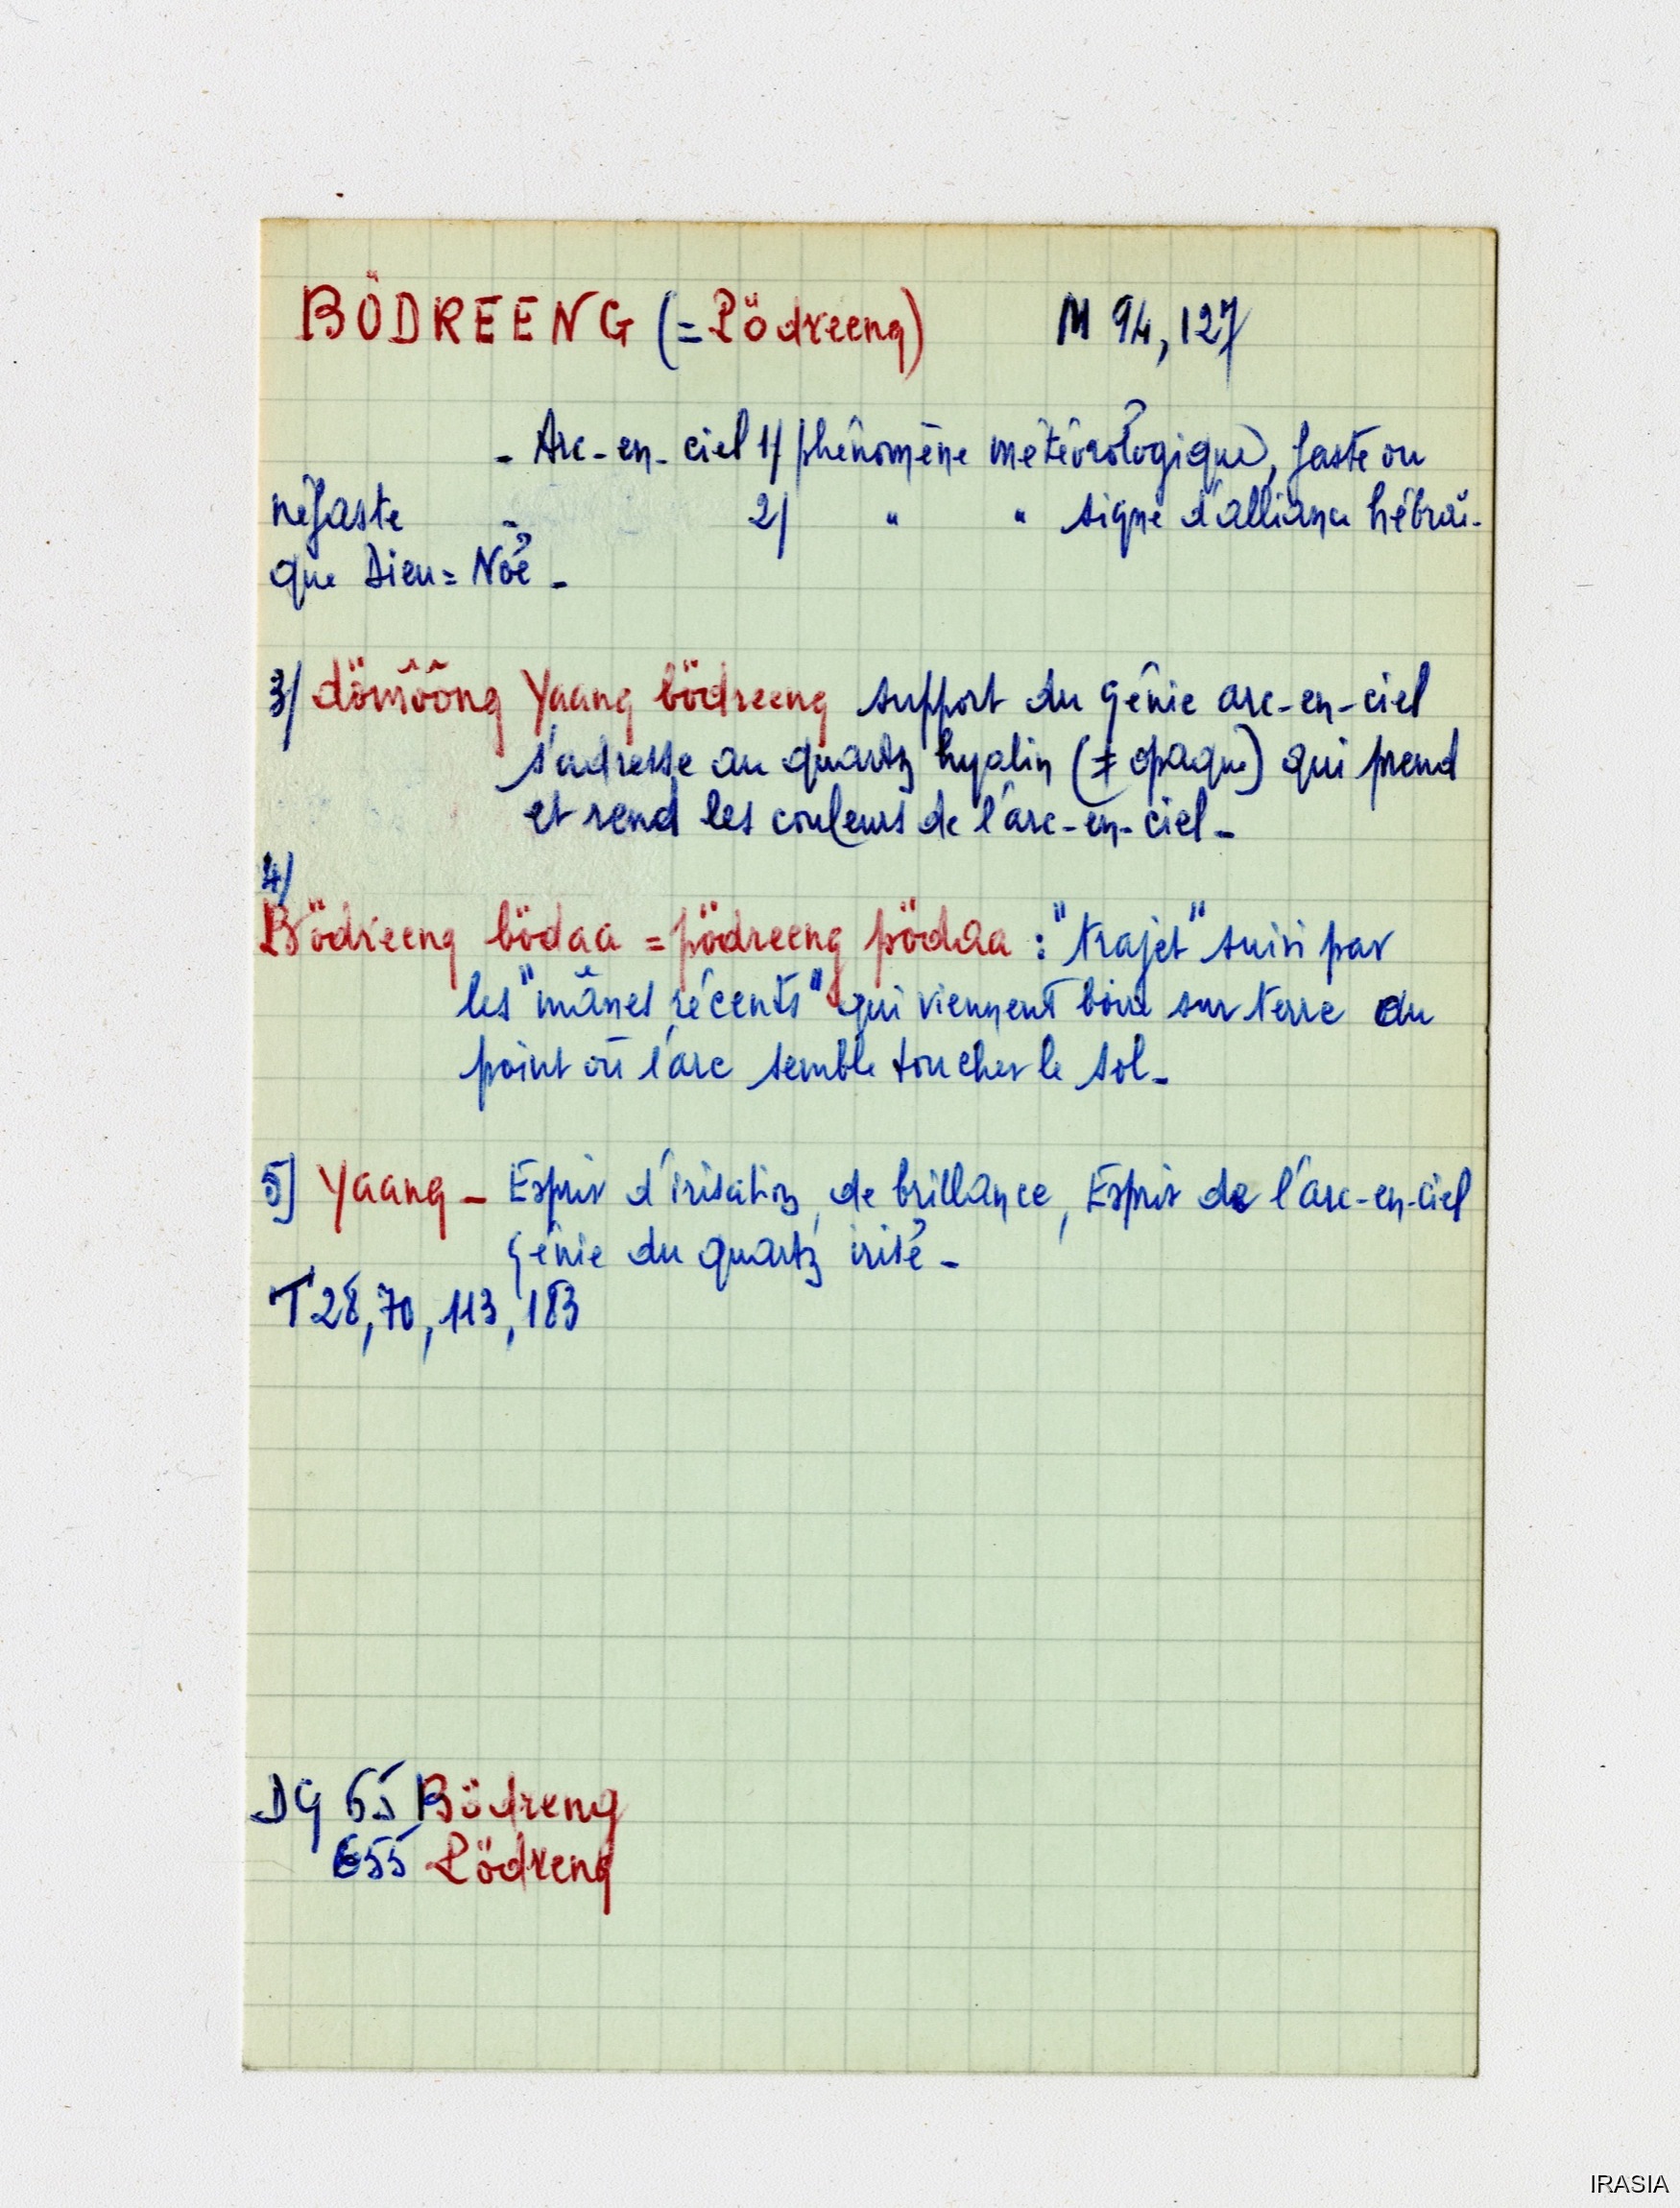 BÖDREENG (= Pödreeng) M 94, 127
- Arc-en-ciel 1/ phénomène météorologique, faste ou
néfaste - 2/ " " signe d'alliance hébraï-
que Dieu = Noé -
3/ dömôông Yaang bödreeng support du génie arc-en-ciel
s'adresse au quartz hyalin (≠ opaque) qui prend
et rend les couleurs de l'arc-en-ciel -
4/
Bödreeng bödaa = pödreeng pödaa : "trajet" suivi par
les "mânes récents" qui viennent boire sur terre au
point où l'arc semble toucher le sol -
5/ Yaang - Esprit d'irisation, de brillance, Esprit de l'arc-en-ciel
Génie du quartz irisé -
T 28, 70, 113, 183
DG 65 Bödreng
655 Pödreng
IRASIA